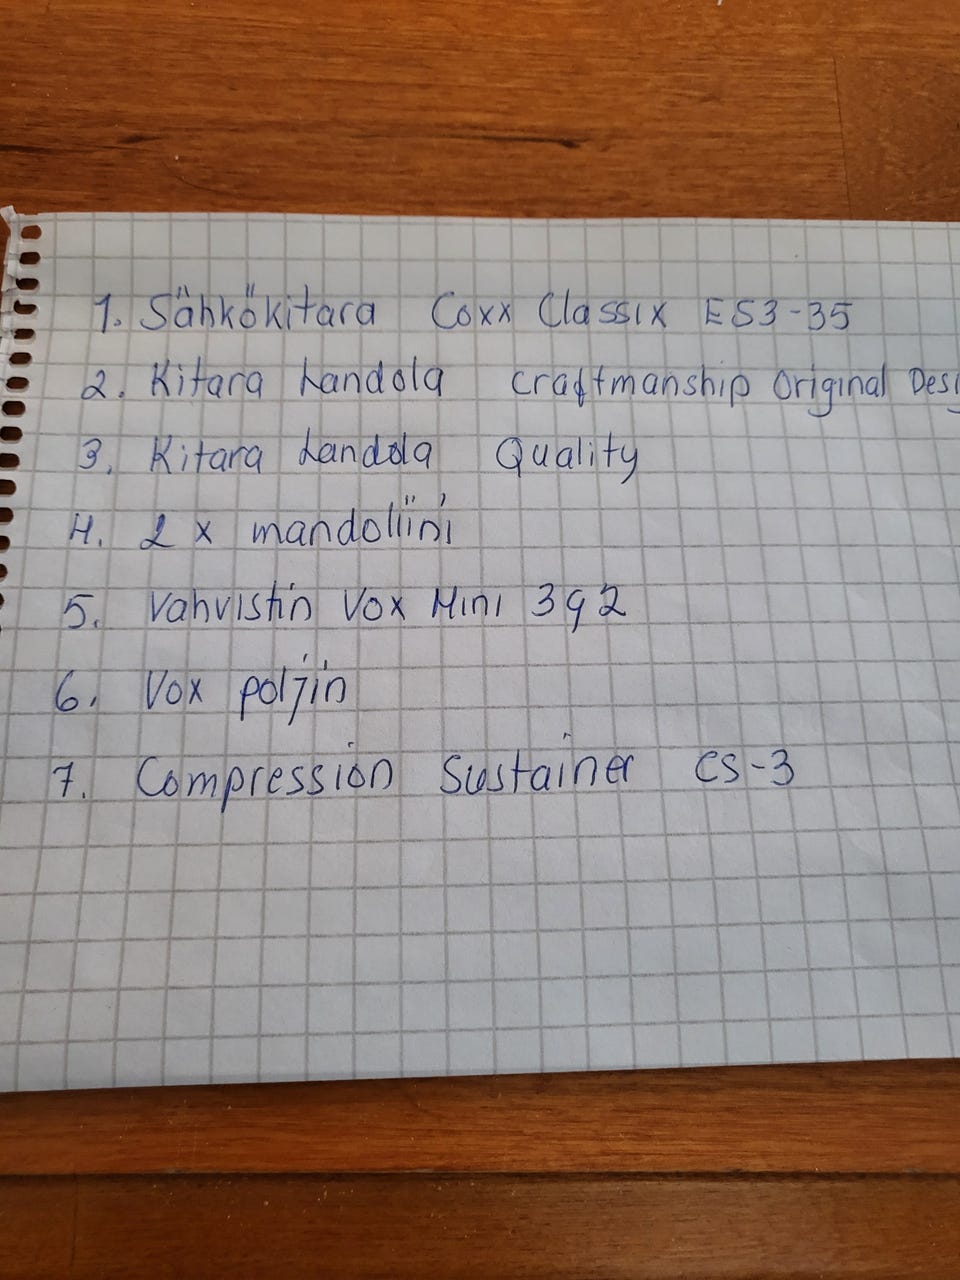 1. Sähkökitara Coxx Classix ES3-35
2. Kitara Landola Craftmanship Original Desig
3. Kitara Landola Quality
4. 2 x mandoliini
5. Vahvistin Vox Mini 3g2
6. Vox poljin
7. Compression Sustainer CS-3